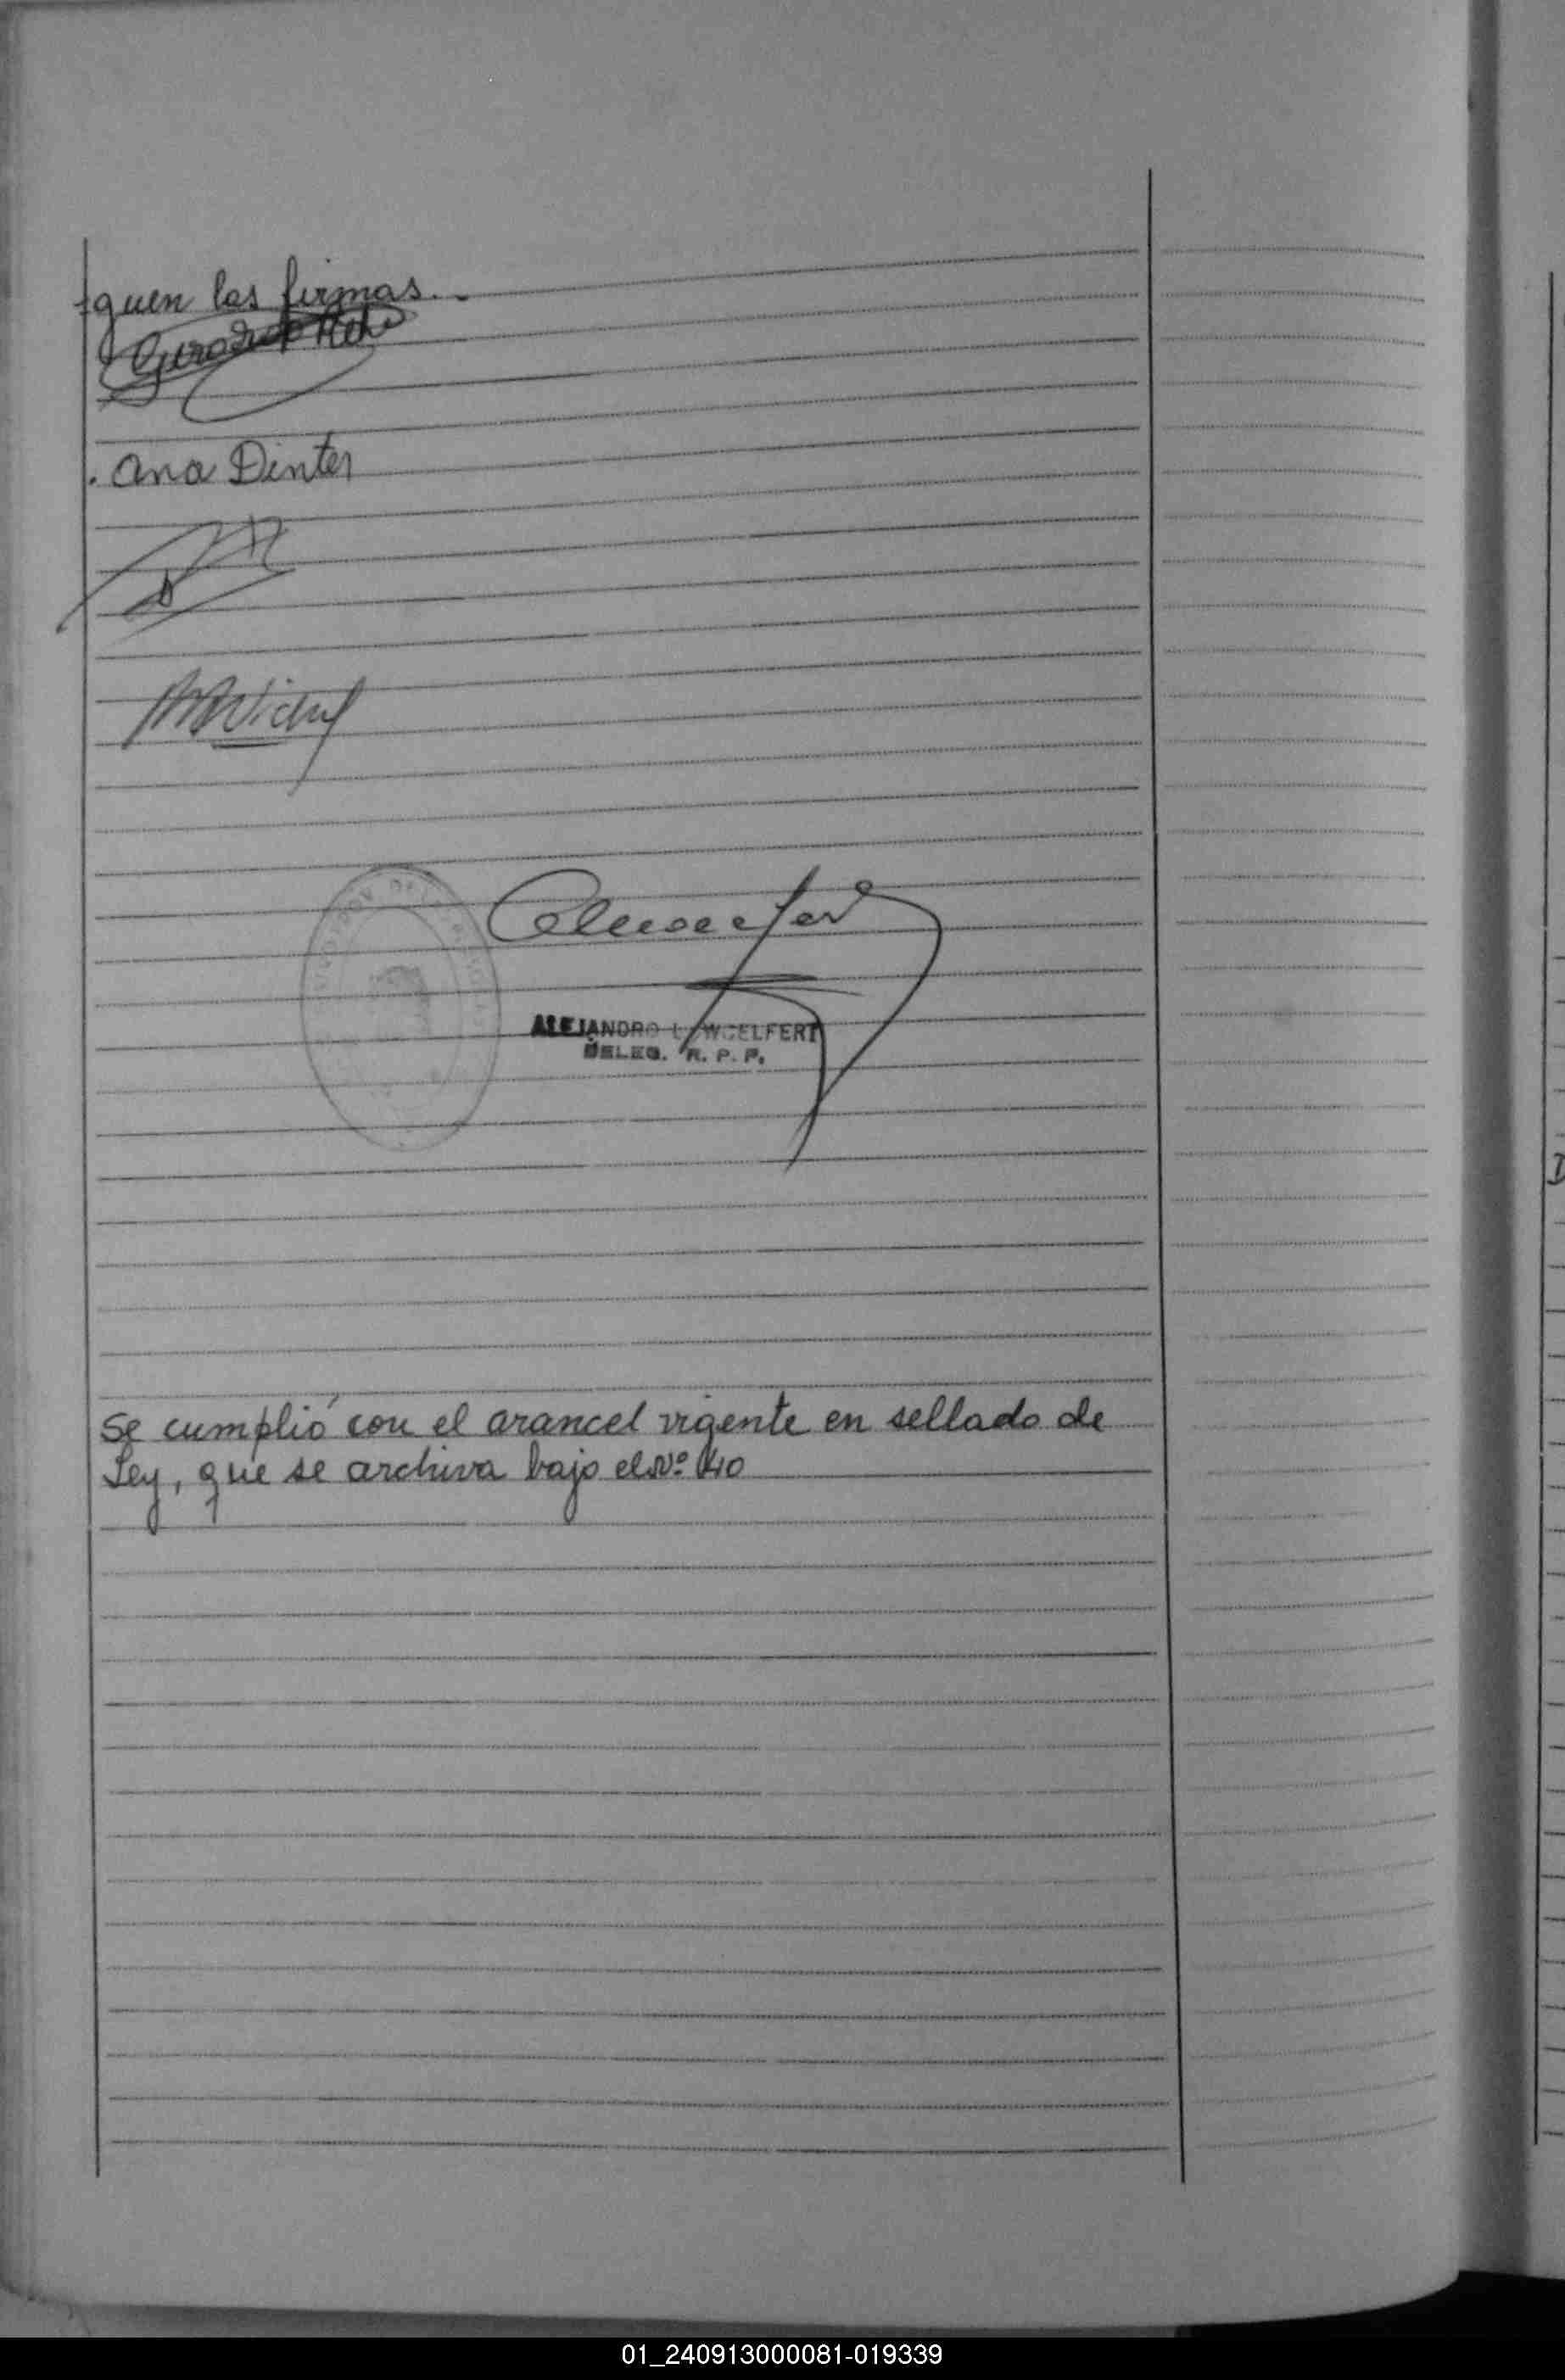 guen las firmas..
. Ana Dinter
ALEJANDRO L. WOELFERT
DELEG. R. P. P.
Se cumplió con el arancel vigente en sellado de
Ley, que se archiva bajo el Nº 40
01_240913000081-019339